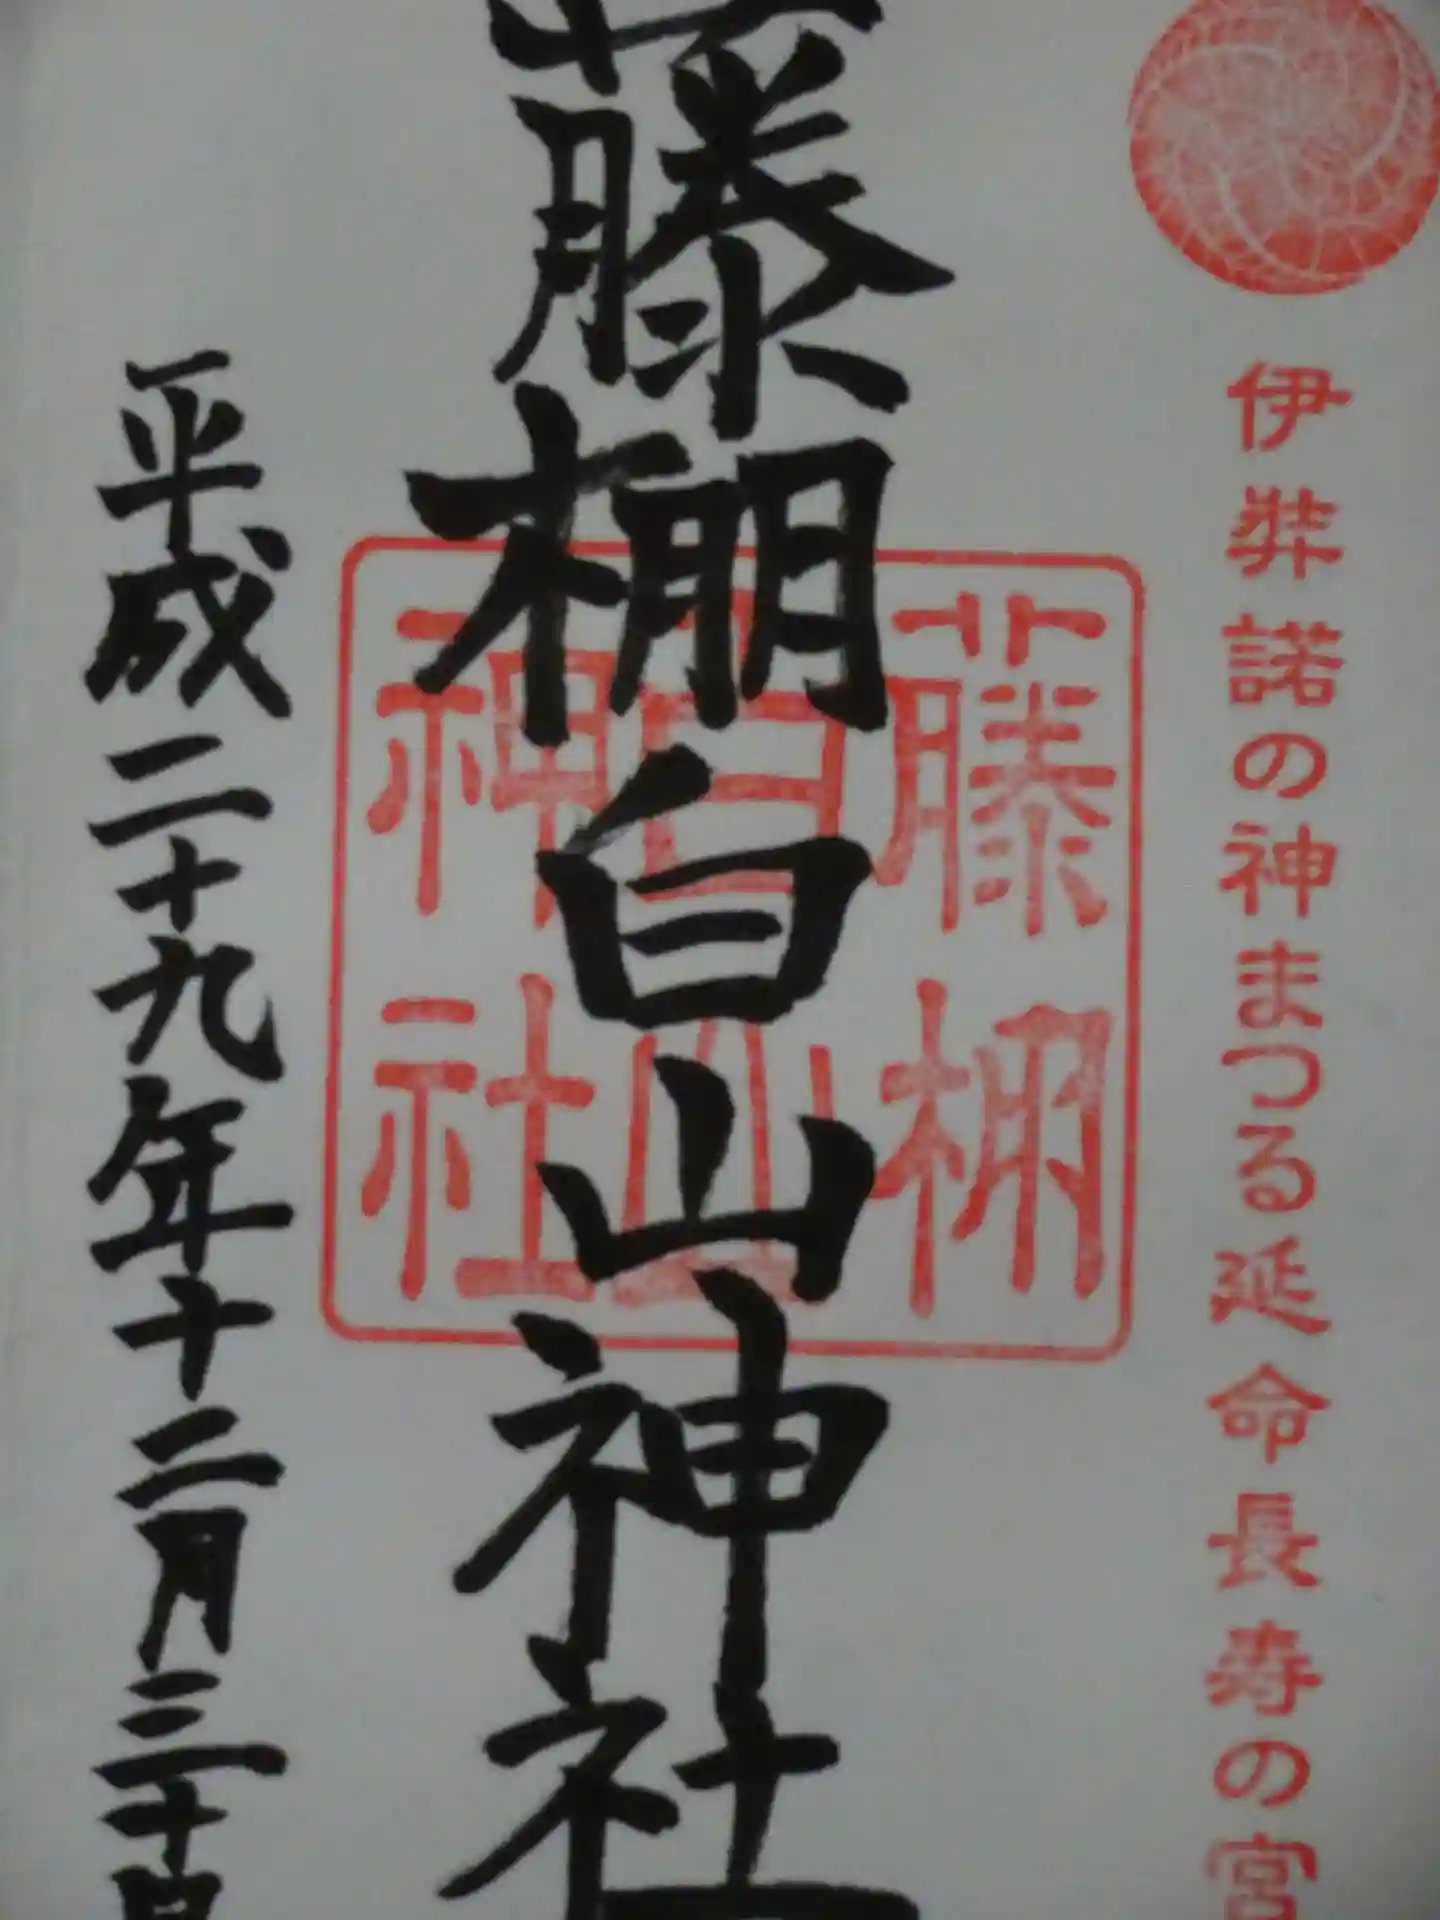 伊弉諾の神まつる延命長寿の宮
藤棚白山神社
藤棚
白山
神社
平成二十九年十二月三十日